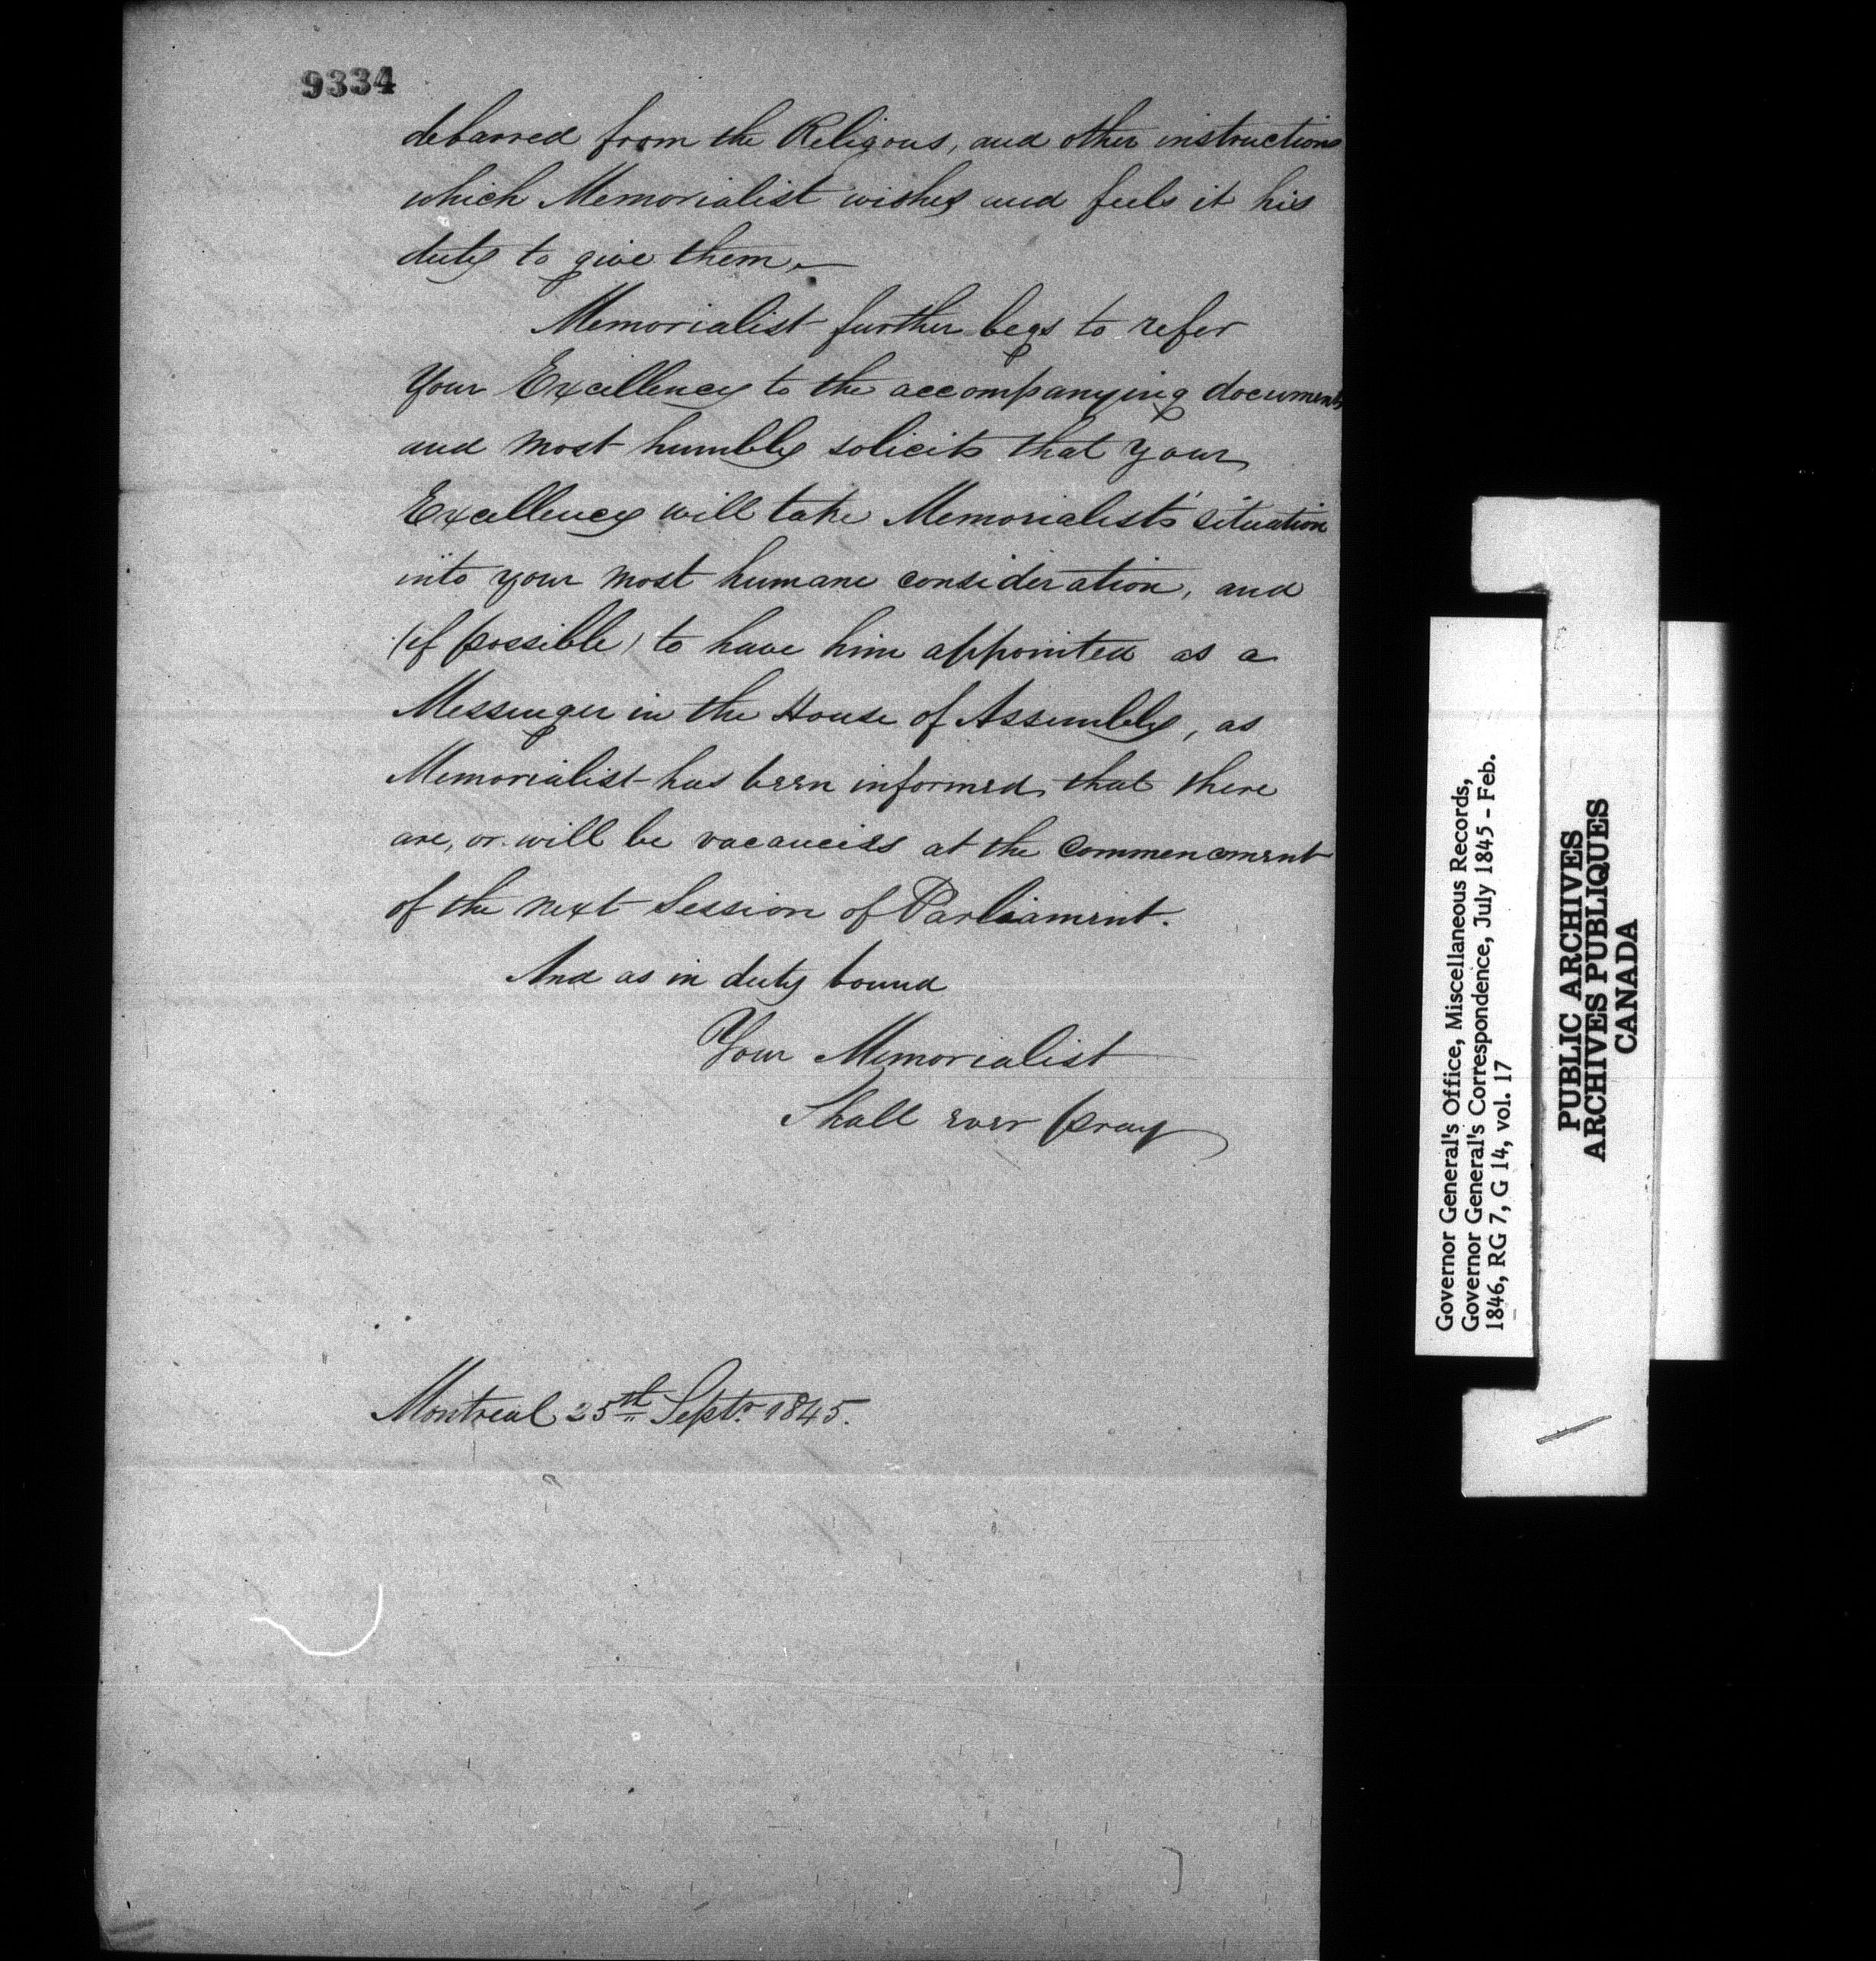 9334
debarred from the Religous, and other instructions
which Memorialist wishes and feels it his
duty to give them.
Memorialist further begs to refer
Your Excellency to the accompanying documents
and most humbly solicits that your
Excellency will take Memorialists' situation
into your most humane consideration, and
(if possible) to have him appointed as a
Messenger in the House of Assembly, as
Memorialist has been informed, that there
are, or will be vacancies at the Commencement
of the next Session of Parliament.
And as in duty bound
Your Memorialist
Shall ever pray
Montreal 25st Septr. 1845.
Governor General's Office, Miscellaneous Records,
Governor General's Correspondence, July 1845 - Feb.
1846, RG 7, G 14, vol. 17
PUBLIC ARCHIVES
ARCHIVES PUBLIQUES
CANADA